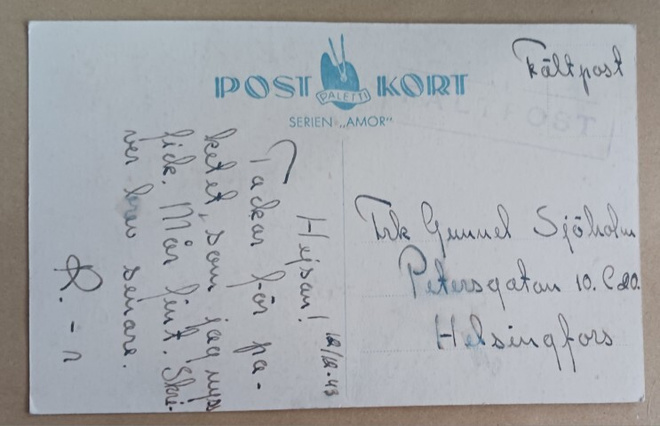 POST KORT
PALETTI
SERIEN „AMOR“
Fältpost
Frk Gunnel Sjöholm
Petersgatan 10. C 20.
Helsingfors
12/12-43
Hejsan!
Tackar för pa-
ketet, som jag nyss
fick. Mår fint. Skri-
ver brev senare.
R. - n